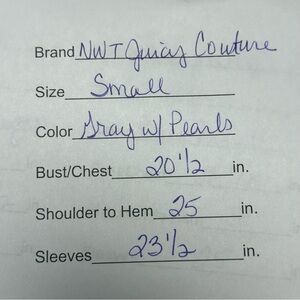 Brand NWT Juicy Couture
Size Small
Color Gray w/ Pearls
Bust/Chest 20 1/2 in.
Shoulder to Hem 25 in.
Sleeves 23 1/2 in.